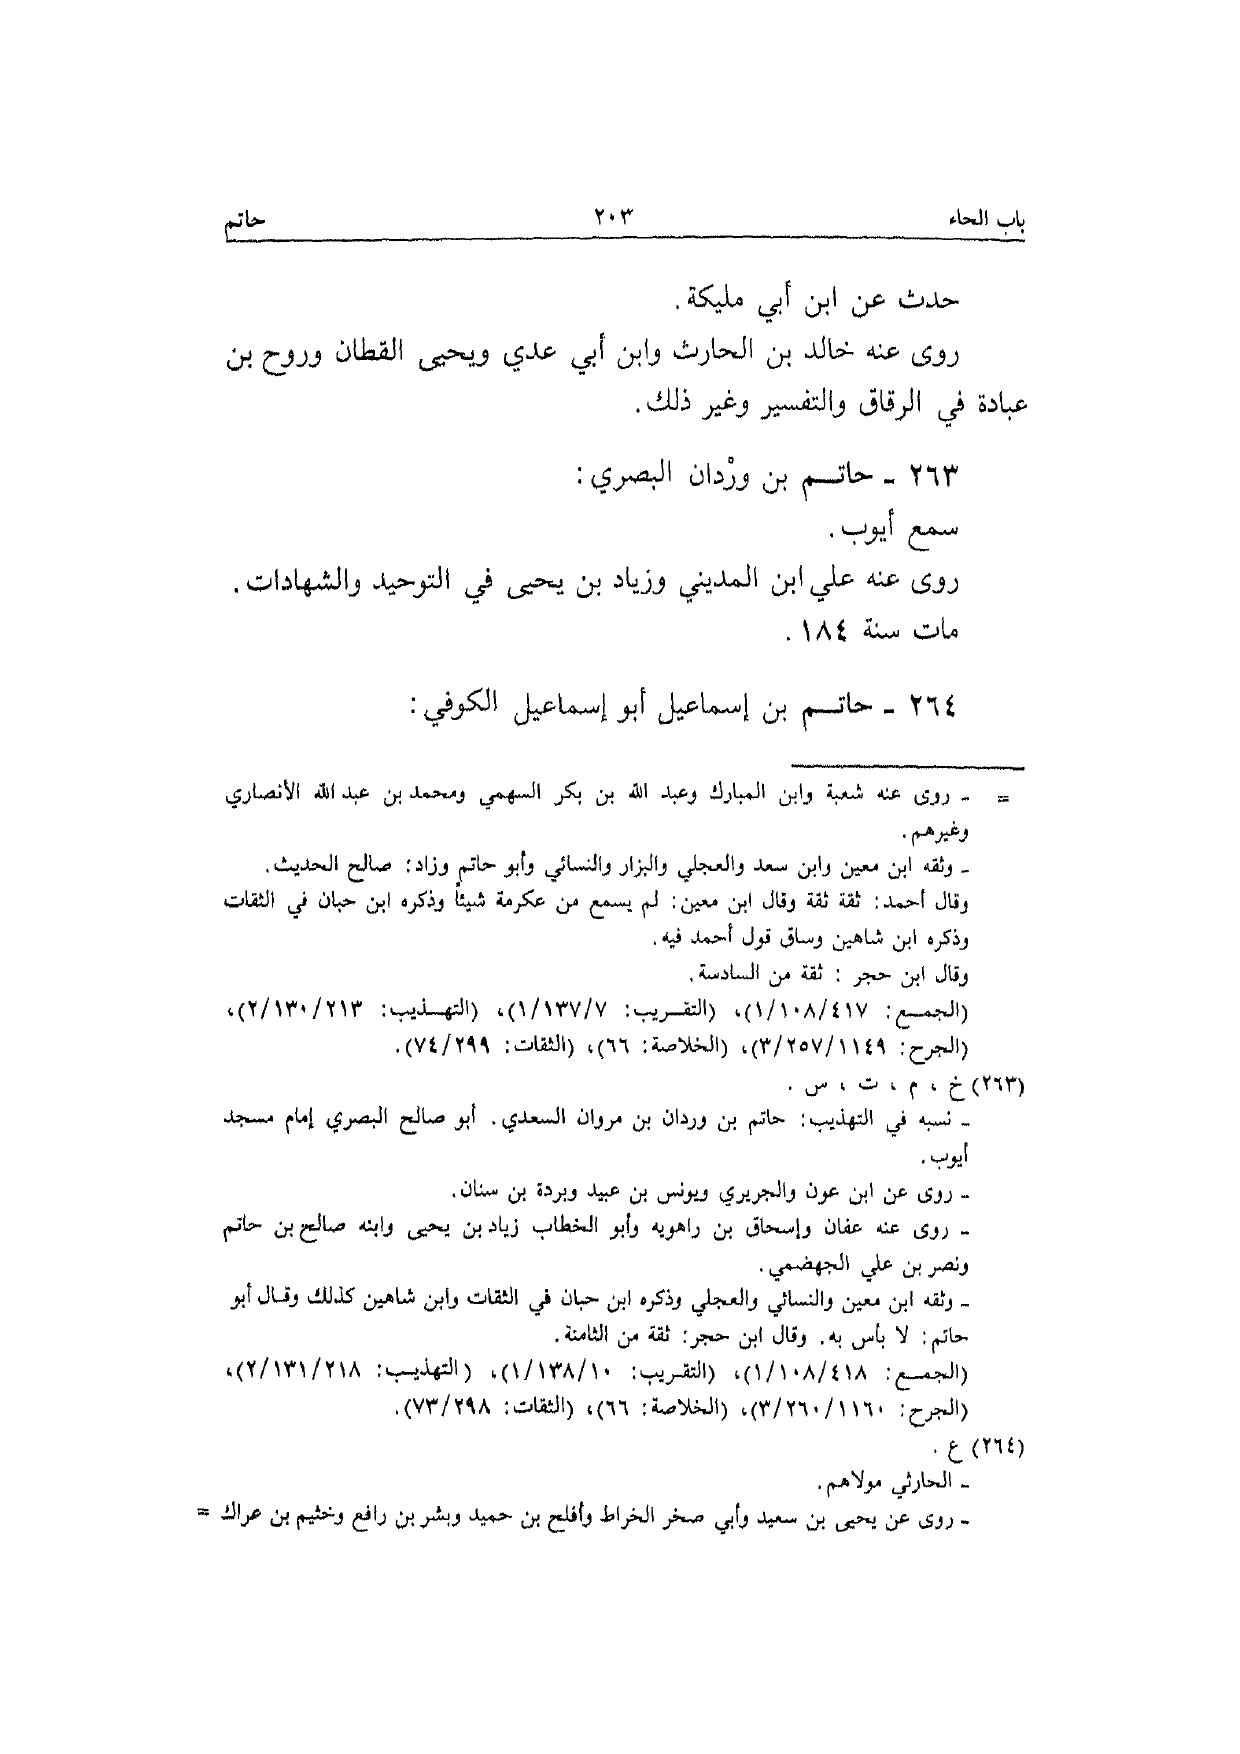 باب الحاء ٢٠٣ حاتم
حدث عن ابن أبي مليكة.
روى عنه خالد بن الحارث وابن أبي عدي ويحيى القطان وروح بن
عبادة في الرقاق والتفسير وغير ذلك.
٢٦٣ - حاتم بن ورْدان البصري:
سمع أيوب.
روى عنه علي ابن المديني وزياد بن يحيى في التوحيد والشهادات.
مات سنة ١٨٤.
٢٦٤ - حاتم بن إسماعيل أبو إسماعيل الكوفي:
= - روى عنه شعبة وابن المبارك وعبد الله بن بكر السهمي ومحمد بن عبد الله الأنصاري
وغيرهم.
- وثقه ابن معين وابن سعد والعجلي والبزار والنسائي وأبو حاتم وزاد: صالح الحديث.
وقال أحمد: ثقة ثقة وقال ابن معين: لم يسمع من عكرمة شيئاً وذكره ابن حبان في الثقات
وذكره ابن شاهين وساق قول أحمد فيه.
وقال ابن حجر : ثقة من السادسة.
(الجمع: ١/١٠٨/٤١٧)، (التقريب: ١/١٣٧/٧)، (التهذيب: ٢/١٣٠/٢١٣)،
(الجرح: ٣/٢٥٧/١١٤٩)، (الخلاصة: ٦٦)، (الثقات: ٧٤/٢٩٩).
(٢٦٣) خ ، م ، ت ، س .
- نسبه في التهذيب: حاتم بن وردان بن مروان السعدي. أبو صالح البصري إمام مسجد
أيوب.
- روى عن ابن عون والجريري ويونس بن عبيد وبردة بن سنان.
- روى عنه عفان وإسحاق بن راهويه وأبو الخطاب زياد بن يحيى وابنه صالح بن حاتم
ونصر بن علي الجهضمي.
- وثقه ابن معين والنسائي والعجلي وذكره ابن حبان في الثقات وابن شاهين كذلك وقال أبو
حاتم: لا بأس به. وقال ابن حجر: ثقة من الثامنة.
(الجمع: ١/١٠٨/٤١٨)، (التقريب: ١/١٣٨/١٠)، (التهذيب: ٢/١٣١/٢١٨)،
(الجرح: ٣/٢٦٠/١١٦٠)، (الخلاصة: ٦٦)، (الثقات: ٧٣/٢٩٨).
(٢٦٤) ع .
- الحارثي مولاهم.
- روى عن يحيى بن سعيد وأبي صخر الخراط وأفلح بن حميد وبشر بن رافع وخثيم بن عراك =